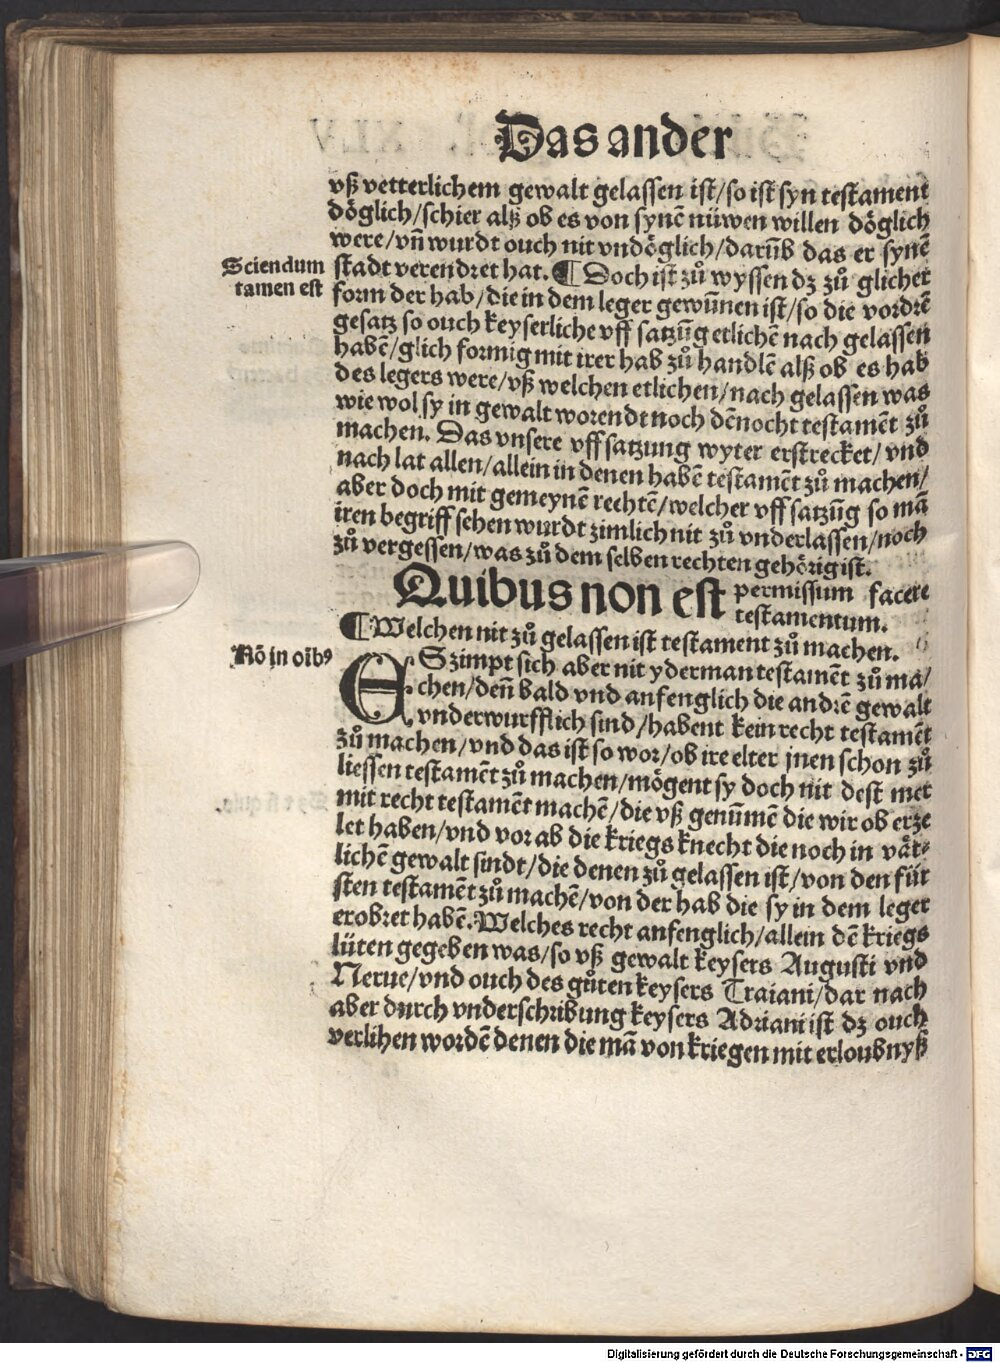 Das ander
vß vetterlichem gewalt gelassen ist/so ist syn testament
döglich/schier alß ob es von synē nüwen willen döglich
were/vñ wurdt ouch nit vndöglich/darūb das er synē
stadt verendret hat. ¶ Doch ist zů wyssen dz zů glicher
Sciendum
tamen est
form der hab/die in dem leger gewūnen ist/so die vordrē
gesatz so ouch keyserliche vff satzūg etlichen nach gelassen
habē/glich formig mit irer hab zů handlē alß ob es hab
des legers were/vß welchen etlichen/nach gelassen was
wie wol sy in gewalt worendt noch dēnocht testamēt zů
machen. Das vnsere vffsatzung wyter erstrecket/vnd
nach lat allen/allein in denen habē testamēt zů machen/
aber doch mit gemeynē rechtē/welcher vff satzūg so mā
iren begriff sehen wurdt zimlich nit zů vnderlassen/noch
zů vergessen/was zů dem selben rechten gehörig ist.
Quibus non est permissum facere
testamentum.
¶ Welchen nit zů gelassen ist testament zů machen.
Nō in oībꝰ
ES zimpt sich aber nit yderman testamēt zů ma/
chen/deñ bald vnd anfenglich die andrē gewalt
vnderwurfflich sind/habent kein recht testamēt
zů machen/vnd das ist so wor/ob ire elter jnen schon zů
liessen testamēt zů machen/mögent sy doch nit dest met
mit recht testamēt machē/die vß genūmē die wir ob erze
let haben/vnd vor ab die kriegs knecht die noch in våt⸗
lichē gewalt sindt/die denen zů gelassen ist/von den für
sten testamēt zů machē/von der hab die sy in dem leger
erobret habē. Welches recht anfenglich/allein dē kriegs
lüten gegeben was/so vß gewalt keysers Augusti vnd
Nerue/vnd ouch des gůten keysers Traiani/dar nach
aber durch vnderschribung keysers Adriani ist dz ouch
verlihen wordē denen die mā von kriegen mit erloubnyß
Digitalisierung gefördert durch die Deutsche Forschungsgemeinschaft - DFG